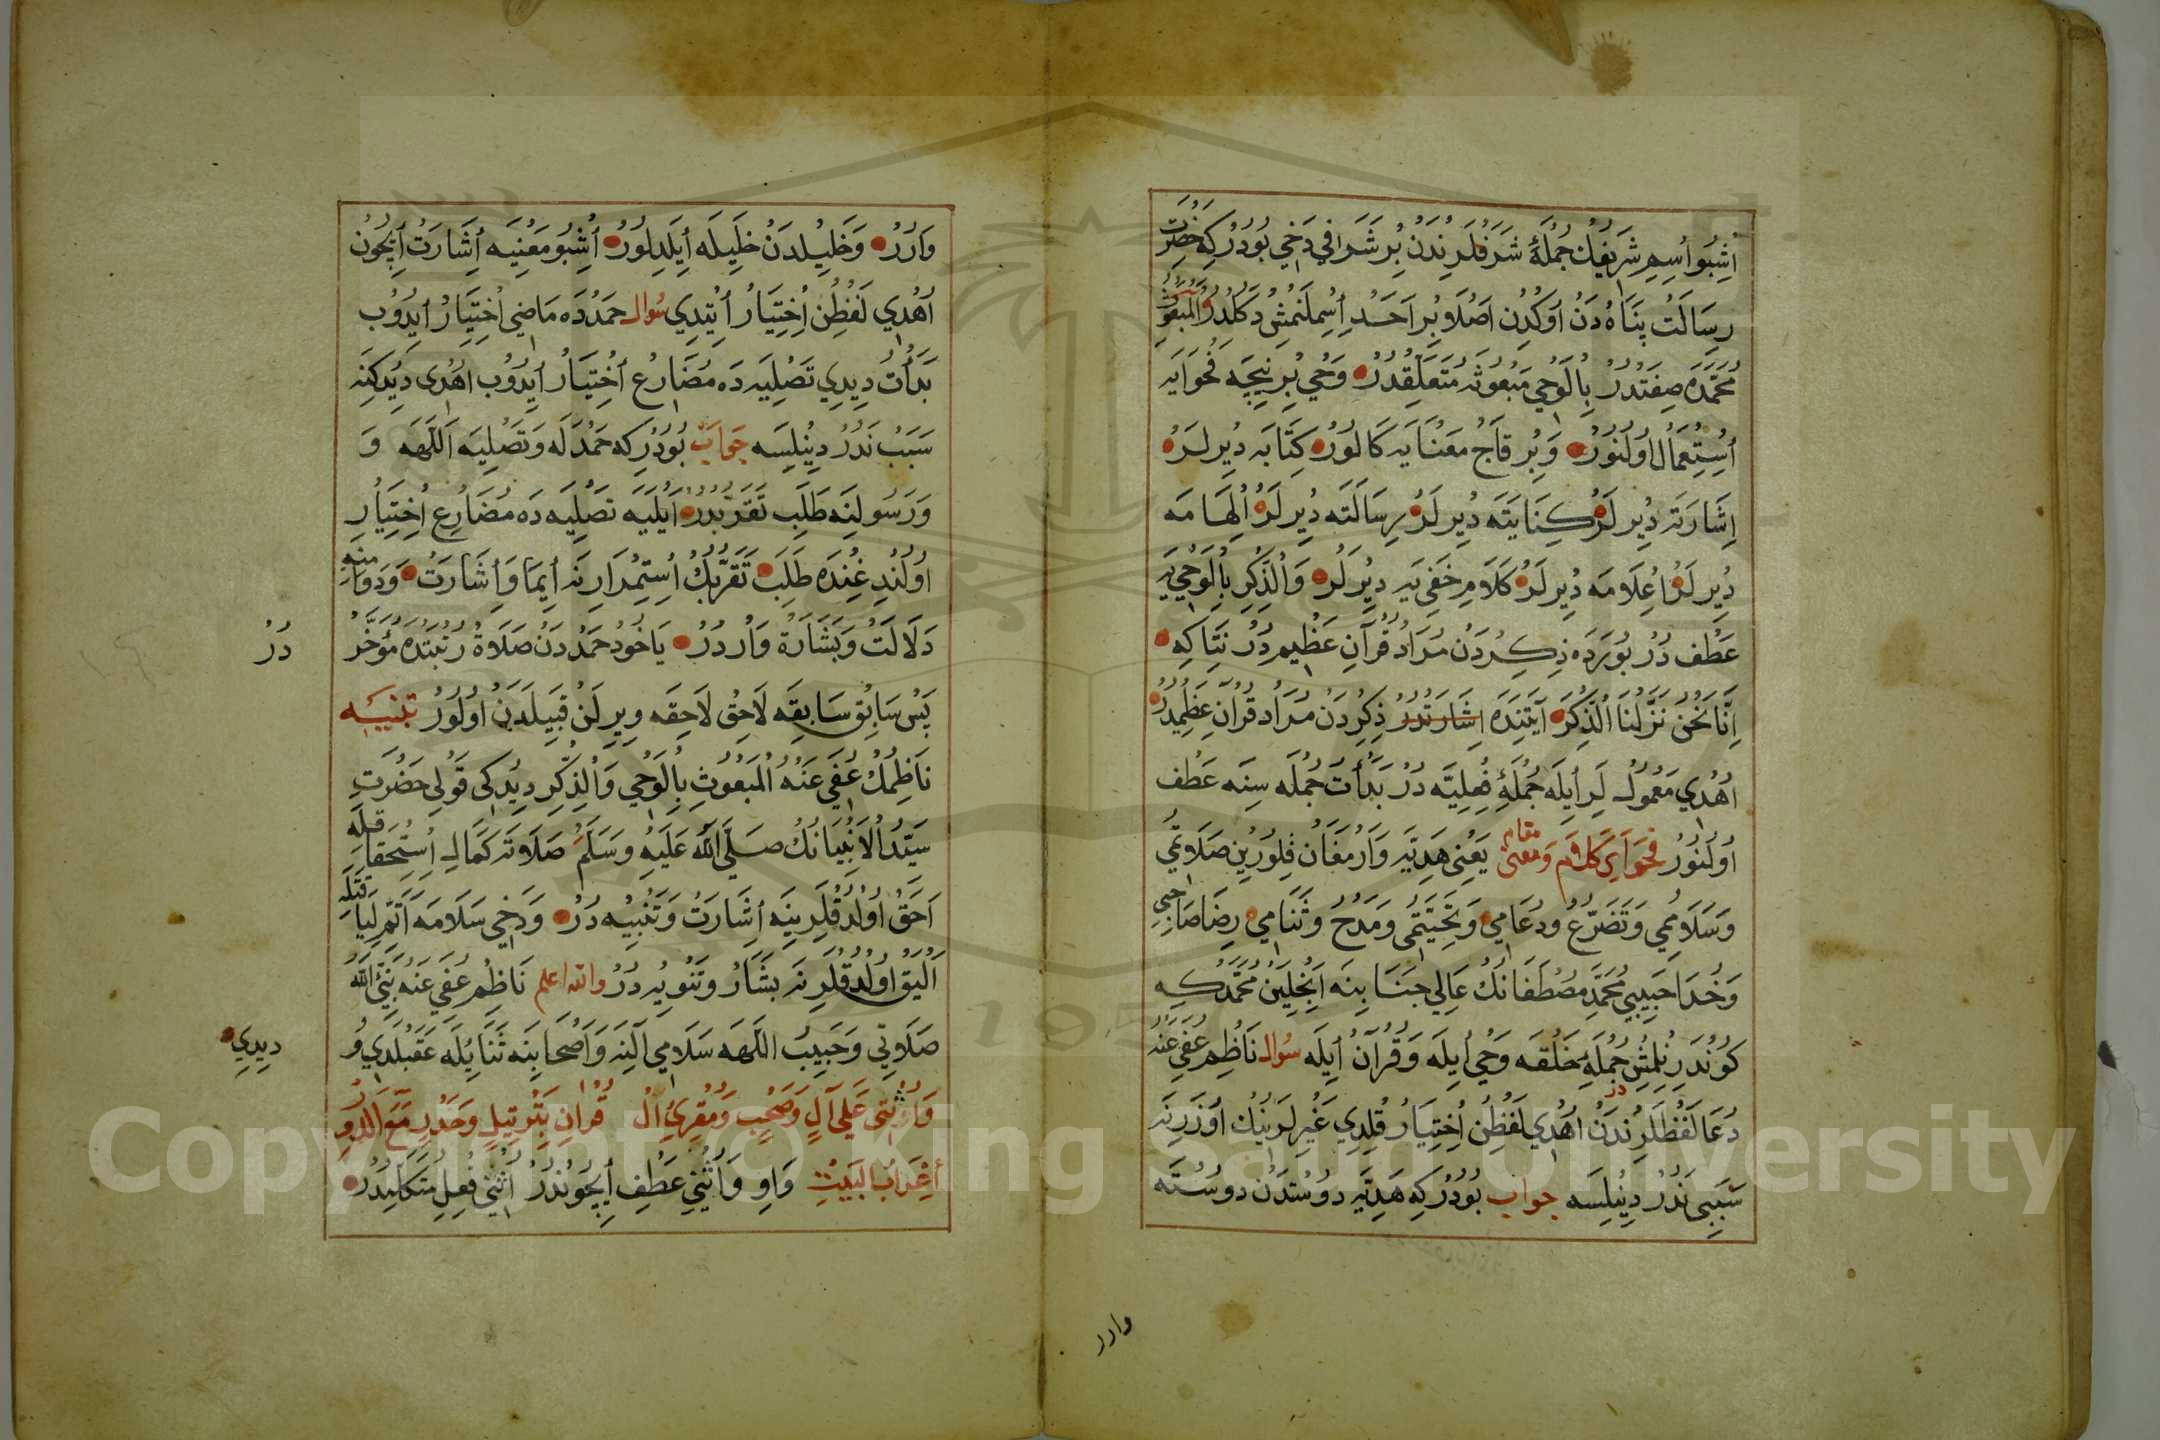 اُشِبُو اُسِمِ شَرِيفُكْ جُمْلَهٔ شَرَفْلَرِنْدَنْ بِرْ شَرَافِي دَخِي بُودُرْكِه حَضْرَتِ
رِسَالَتْ پَنَاهْ دَنْ اُوكُدِنْ اَصْلَا بِرْ اَحَدْ اِسْمِلَنْمِشْ دَكُلْدُرْ وَالْمَبْعُوثِ
مُحَمَّدَه صِفَتْدُرْ بِالْوَحْيِ مَبْعُوثَه مُتَعَلِّقْدُرْ وَحْيِ بِرْ نِيجَه فَحْوَايَه
اُسْتِعْمَالْ اُولُنُورْ وَبِرْ قَاجْ مَعْنَايَه كَالُورْ كِتَابَه دِيرْلَرْ
اِشَارَتَه دِيرْلَرْ كِنَايَتَه دِيرْلَرْ رِسَالَتَه دِيرْلَرْ اِلْهَامَه
دِيرْلَرْ اِعْلَامَه دِيرْلَرْ كَلَامِ خَفِيَيَه دِيرْلَرْ وَالذِّكْرِ بِالْوَحْيِيَه
عَطْفْ دُرْ بُورَدَه ذِكِرْدَنْ مُرَادْ قُرْآنِ عَظِيمْ دُرْ نِتَاكِه
اِنَّا نَحْنُ نَزَّلْنَا الذِّكْرَ آيَتِنْدَه اِشَارَتْدُرْ ذِكِرْدَنْ مُرَادْ قُرْآنِ عَظِيمْدُرْ
اُهْدِي مَعْمُولْ لَرِ اِيلَه جُمْلَهٔ فِعْلِيَّه دُرْ بَدَأْتُ جُمْلَه سِنَه عَطْفْ
اُولُنُورْ فَحْوَايِ كَلَام وَمَعْنَئ مقام يَعْنِي هَدِيَّه وَارْمَغَانْ قِلُورِينْ صَلَاتِمِي
وَسَلَامِمِي وَتَضَرُّعْ وَدُعَامِي وَتَحِيَّتِمِي وَمَدْحْ وَثَنَامِي رِضَا صَاحِبِي
وَخُدَا حَبِيبِي مُحَمَّدِ مُصْطَفَانُكْ عَالِي جَنَابِنَه اَنْجِلَيِنْ مُحَمَّدْكِه
كُوْنْدَرِلْمِشْ جُمْلَهِ خَلْقَه وَحْيِ اِيلَه وَقُرْآنْ اِيلَه سُوال نَاظِمِ عُفِيَ عَنْهُ
دُعَا لَفْظْلَرِنْدَنْ اُهْدِي لَفْظِنْ اُخْتِيَارْ قِلْدِي غَيْرِلَرِنُكْ اُوزَرِنَه
سَبَبِي نَدُرْ دِينِلِسَه جواب بُودُرْكِه هَدِيَّه دُوسْتْدَنْ دُوسْتَه
وارر
وَارُرْ وَخَلِيلْدَنْ خَلِيلَه اِيلَدِلُورْ اُشْبُو مَعْنِيَه اِشَارَتْ اِيچُونْ
اُهْدِي لَفْظِنْ اِخْتِيَارْ اِيْتِدِي سُوال حَمْدْدَه مَاضِي اُخْتِيَارْ اِيدُوبْ
بَدَأْتُ دِيدِي تَصْلِيَه دَه مُضَارِعْ اُخْتِيَارْ اِيدُوبْ اُهْدِي دِيدِكِنَه
سَبَبْ نَدُرْ دِينِلِسَه جَوَاب بُودُرْكِه حَمْدْ اَللّٰهَه وَتَصْلِيَه اَللّٰهَه وَ
وَرَسُولِنَه طَلَبِ تَقَرُّبْدُرْ اَيْلَيَه تَصْلِيَه دَه مُضَارِعِ اُخْتِيَارِ
اُولُنْدِغِنْدَه طَلَبِ تَقَرُّبُكْ اُسْتِمْرَارِنَه اِيمَا وَاِشَارَتْ وَدَوَامِنَه
دَلَالَتْ وَبَشَارَةْ وَارْدُرْ يَاخُودْ حَمْدْدَنْ صَلَاةْ رُتْبَتَدَه مُؤَخَّرْ
دُرْ
پَسْ سَابِقْ سَابِقَه لَاحِقْ لَاحِقَه وِيرِلَنْ قَبِيلْدَنْ اُولُورْ تنبيه
نَاظِمُكْ عُفِيَ عَنْهُ الْمَبْعُوثِ بِالْوَحْيِ وَالذِّكْرِ دِيدِكِي قَوْلِي حَضْرَتِ
سَيِّدُ الْاَنْبِيَانُكْ صَلَّي اللّٰهُ عَلَيْهِ وَسَلَّمَ صَلَاتَه كَمَالِ اُسْتِحْقَاقِلَه
اَحَقْ اُولْدُقْلَرِينَه اِشَارَتْ وَتَنْبِيهْ دُرْ وَدَخِي سَلَامَه اَتَمِّ لِيَاقَتَلَه
اَلْيَقْ اُولْدُقْلَرِنَه بَشَارْ وَتَنْوِيرْ دُرْ والله اعلم نَاظِمِ عُفِيَ عَنْهُ نَبِيُّ اللّٰه
صَلَاتِي وَحَبِيبُ اللّٰهَه سَلَامِي آلِنَه وَاَصْحَابِنَه ثَنَايْلَه عَقَبْلَدِي وُ
دِيدِي
وَاُثْنِي عَلَي آلٍ وَصَحْبٍ وَمُقْرِئِ الْ قُرْانِ بِتَرْتِيلٍ وَحَدْرٍ مَعَ الدَّوْرِ
اَعْرَابُ الْبَيْتْ وَاوِ وَاُثْنِي عَطْفِ اِيچُونْدُرْ اُثْنِي فِعْلِ مُتَكَلِّمْدُرْ
Copyright © King Saud University